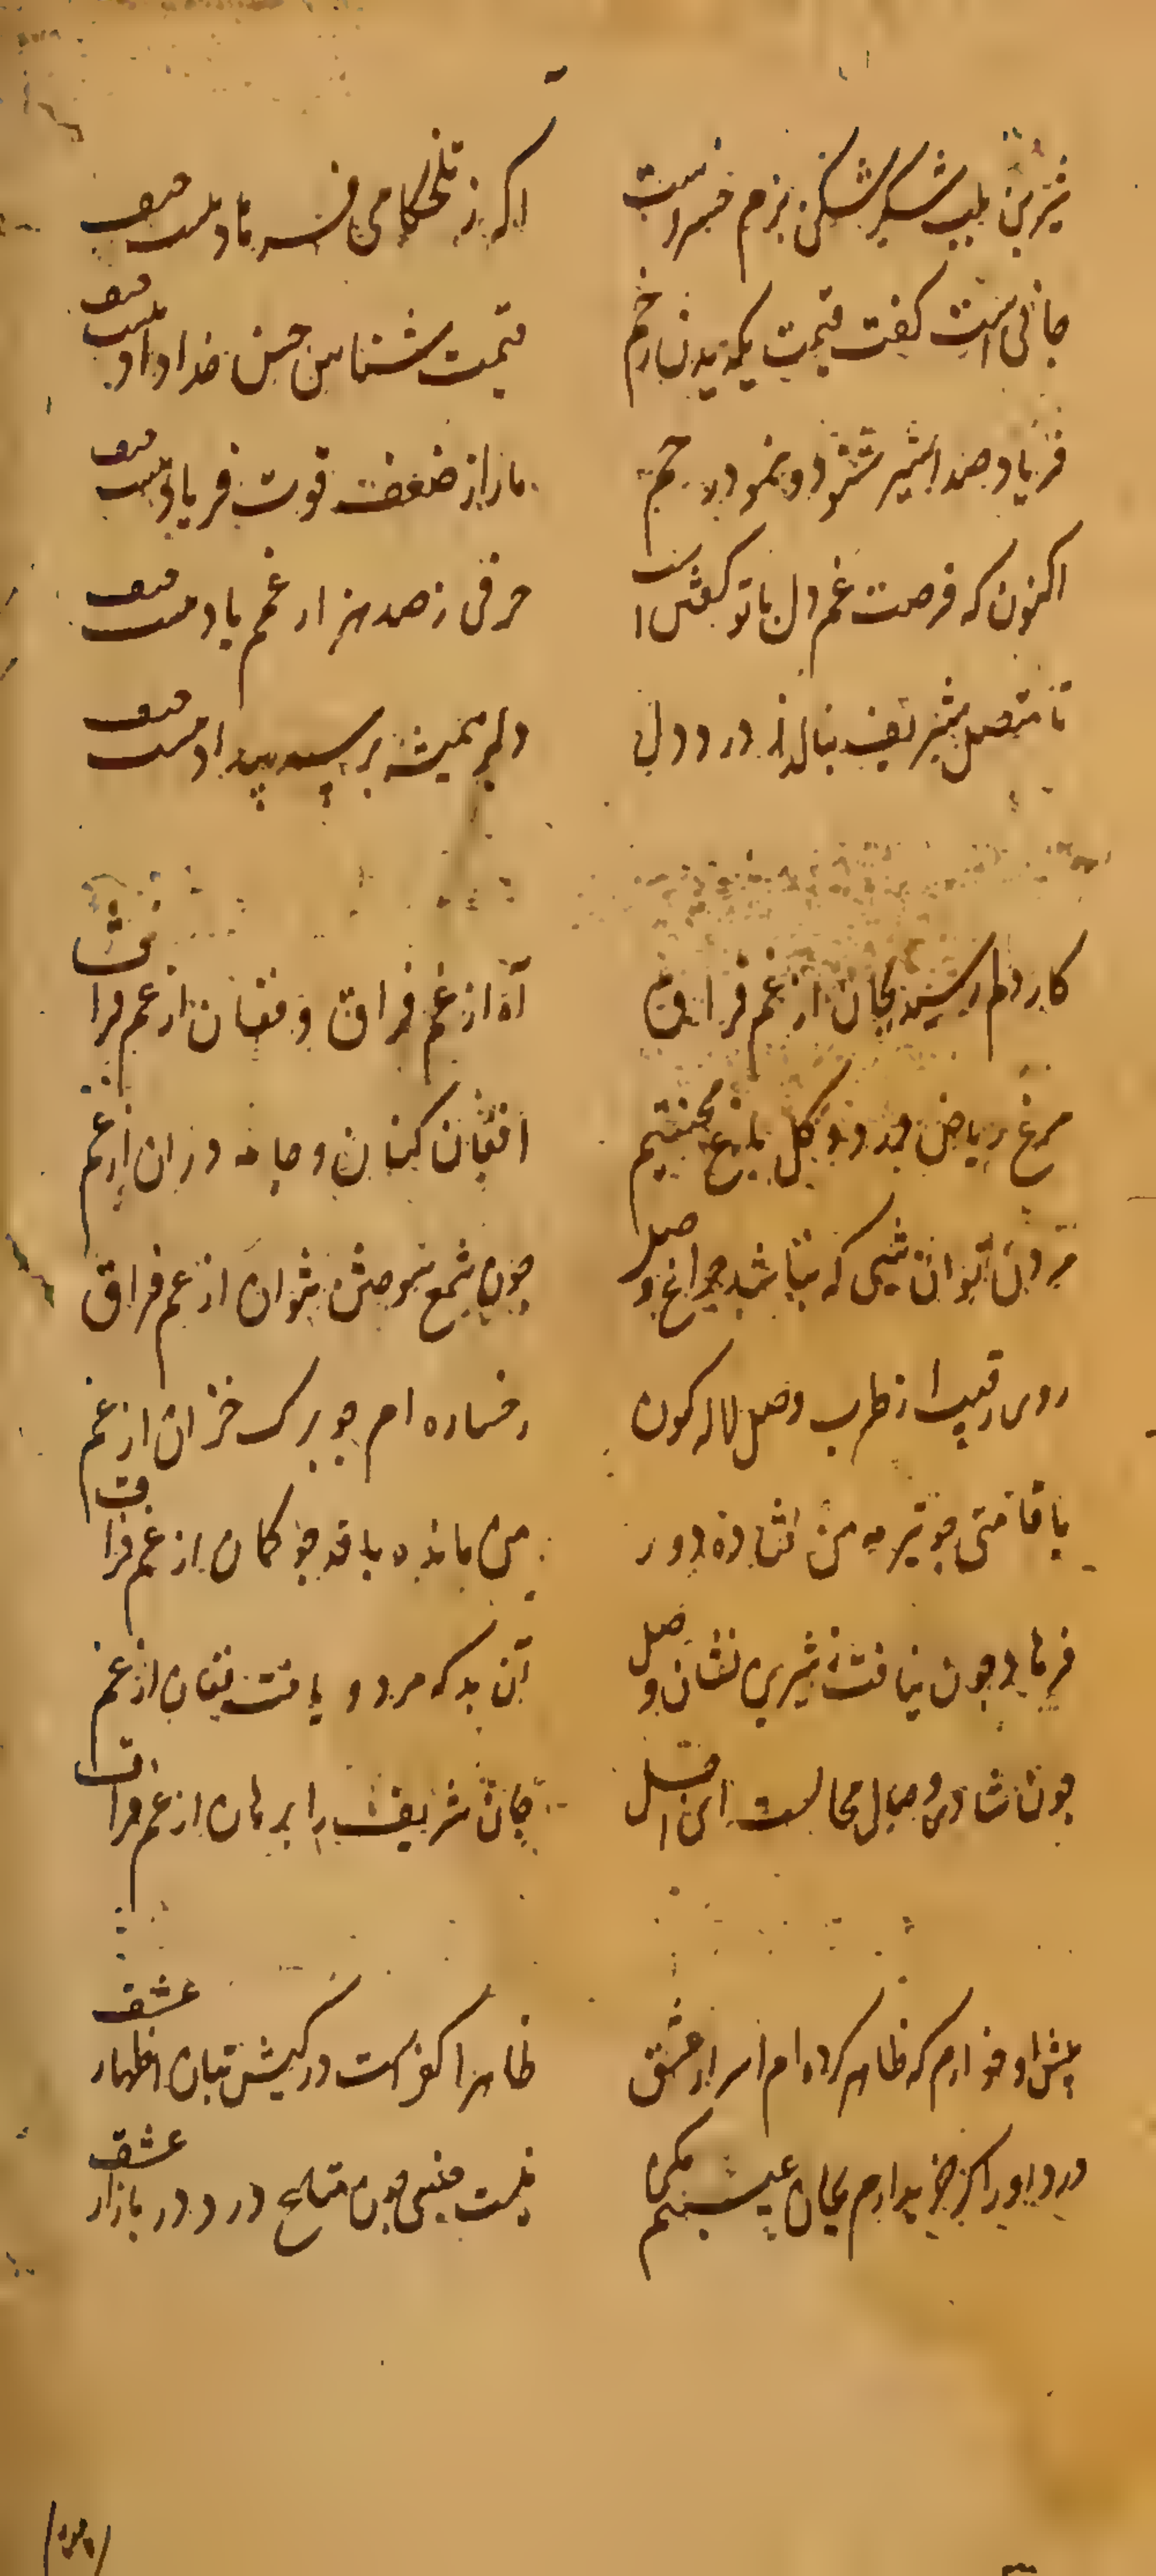 شیرین بلب شکر شکن بزم خسرو است
اگر ز تلخکامی فرهاد نیست حیف
جانی است گفت قیمت یکدیدن رخم
قیمت شناس حسن خداداد نیست حیف
فریاد صد اسیر شنود و نمود رحم
ما را ز ضعف قوت فریاد نیست حیف
اکنون که فرصت غم دل با تو گفتن است
حرفی ز صد هزار غم یاد نیست حیف
تا متصل شریف بنالد ز درد دل
دلبر همیشه بر سر بیداد نیست حیف
کار دلم رسید بجان از غم فراق
آه از غم فراق و فغان از غم فراق
مرغ ریاض درد و گل باغ محنتیم
افغان کنان و جامه دران از غم
مردن توان شبی که نباشد چراغ وصل
چون شمع سوختن نتوان از غم فراق
روی رقیب از طرب وصل لاله گون
رخساره ام چو برگ خزان از غم
با قامتی چو تیر مه من فتاده دور
من مانده با قد چو کمان از غم فراق
فرهاد چون نیافت ز شیرین نشان وصل
آن به که مرد و یافت امان از غم
چون شادی وصال محالست ای اجل
جان شریف را برهان از غم فراق
پیش او خوارم که ظاهر کرده ام اسرار عشق
ظاهرا کفر است در کیش بتان اظهار عشق
درد او را گر خریدارم بجان عیبم مکن
نیست جنسی چون متاع درد در بازار عشق